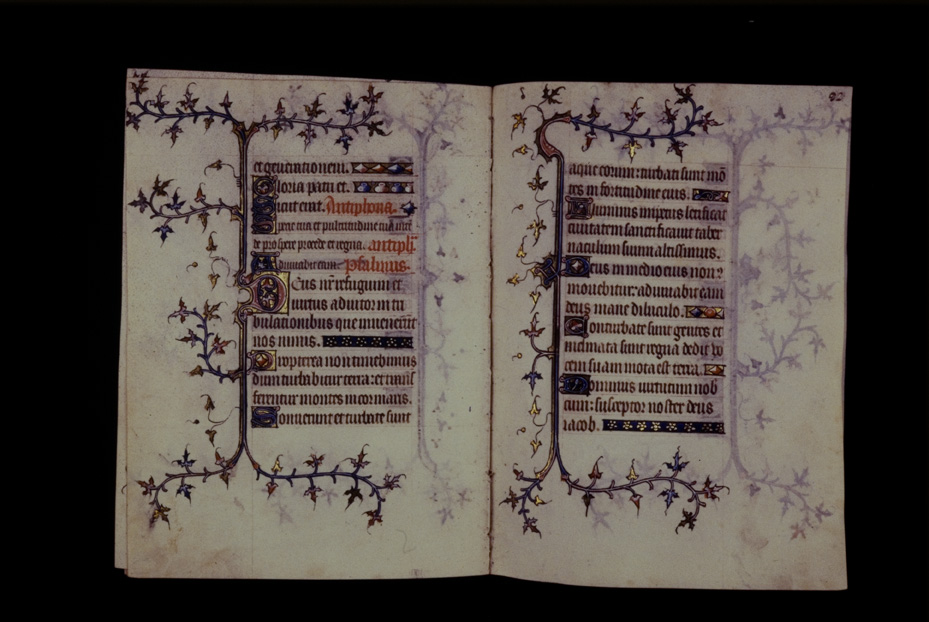 et generationem.
Gloria patri et.
Sicut erat. Antiphona.
Specie tua et pulcritudine tua inte
de prospere procede et regna. antiph̄
Adiuvabit eam. Psalmus.
Deus nr̄ refugium et
virtus adiutor in tri
bulationibus que invenerūt
nos nimis.
Propterea non timebimus
dum turbabitur terra: et trans
ferentur montes in cor maris.
Sonuerunt et turbate sunt
92
aque eorum: turbati sunt mō
tes in fortitudine eius.
Fluminis impetus letificat
civitatem sanctificavit taber
naculum suum altissimus.
Deus in medio eius non 9
movebitur: adiuvabit eam
deus mane diluculo.
Conturbate sunt gentes et
inclinata sunt regna dedit vo
cem suam mota est terra.
Dominus virtutum nob
cum: susceptor noster deus
iacob.